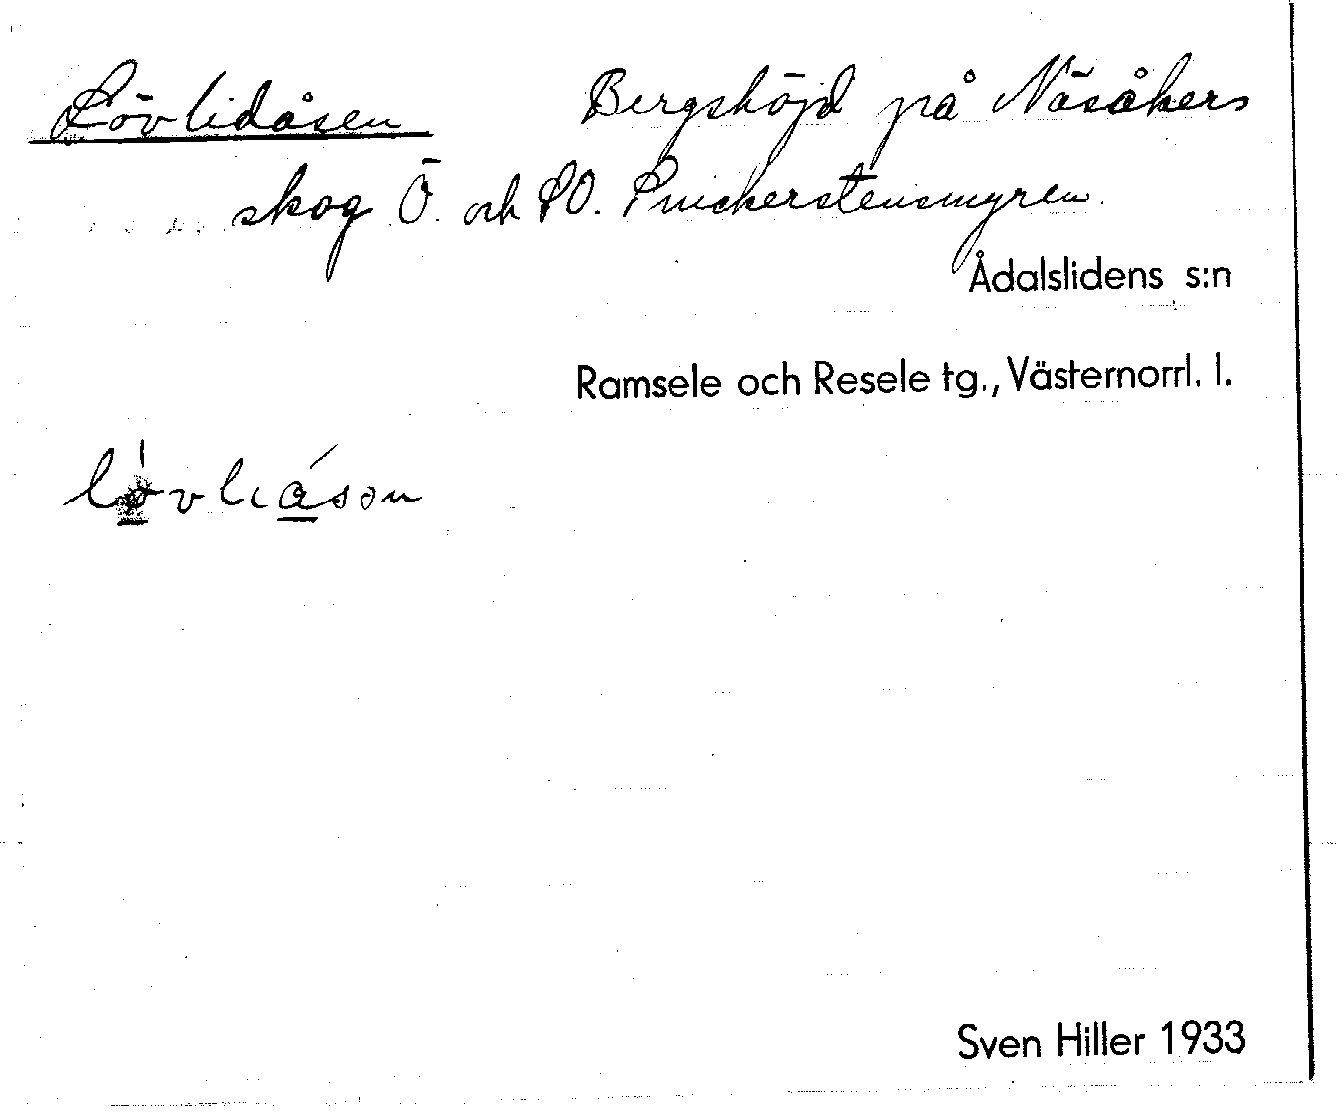 Lövlidåsen Bergshöjd på Näsåkers
skog Ö. och SO. Snickerstensmyren.
Ådalslidens s:n
Ramsele och Resele tg., Västernorrl. l.
Sven Hiller 1933